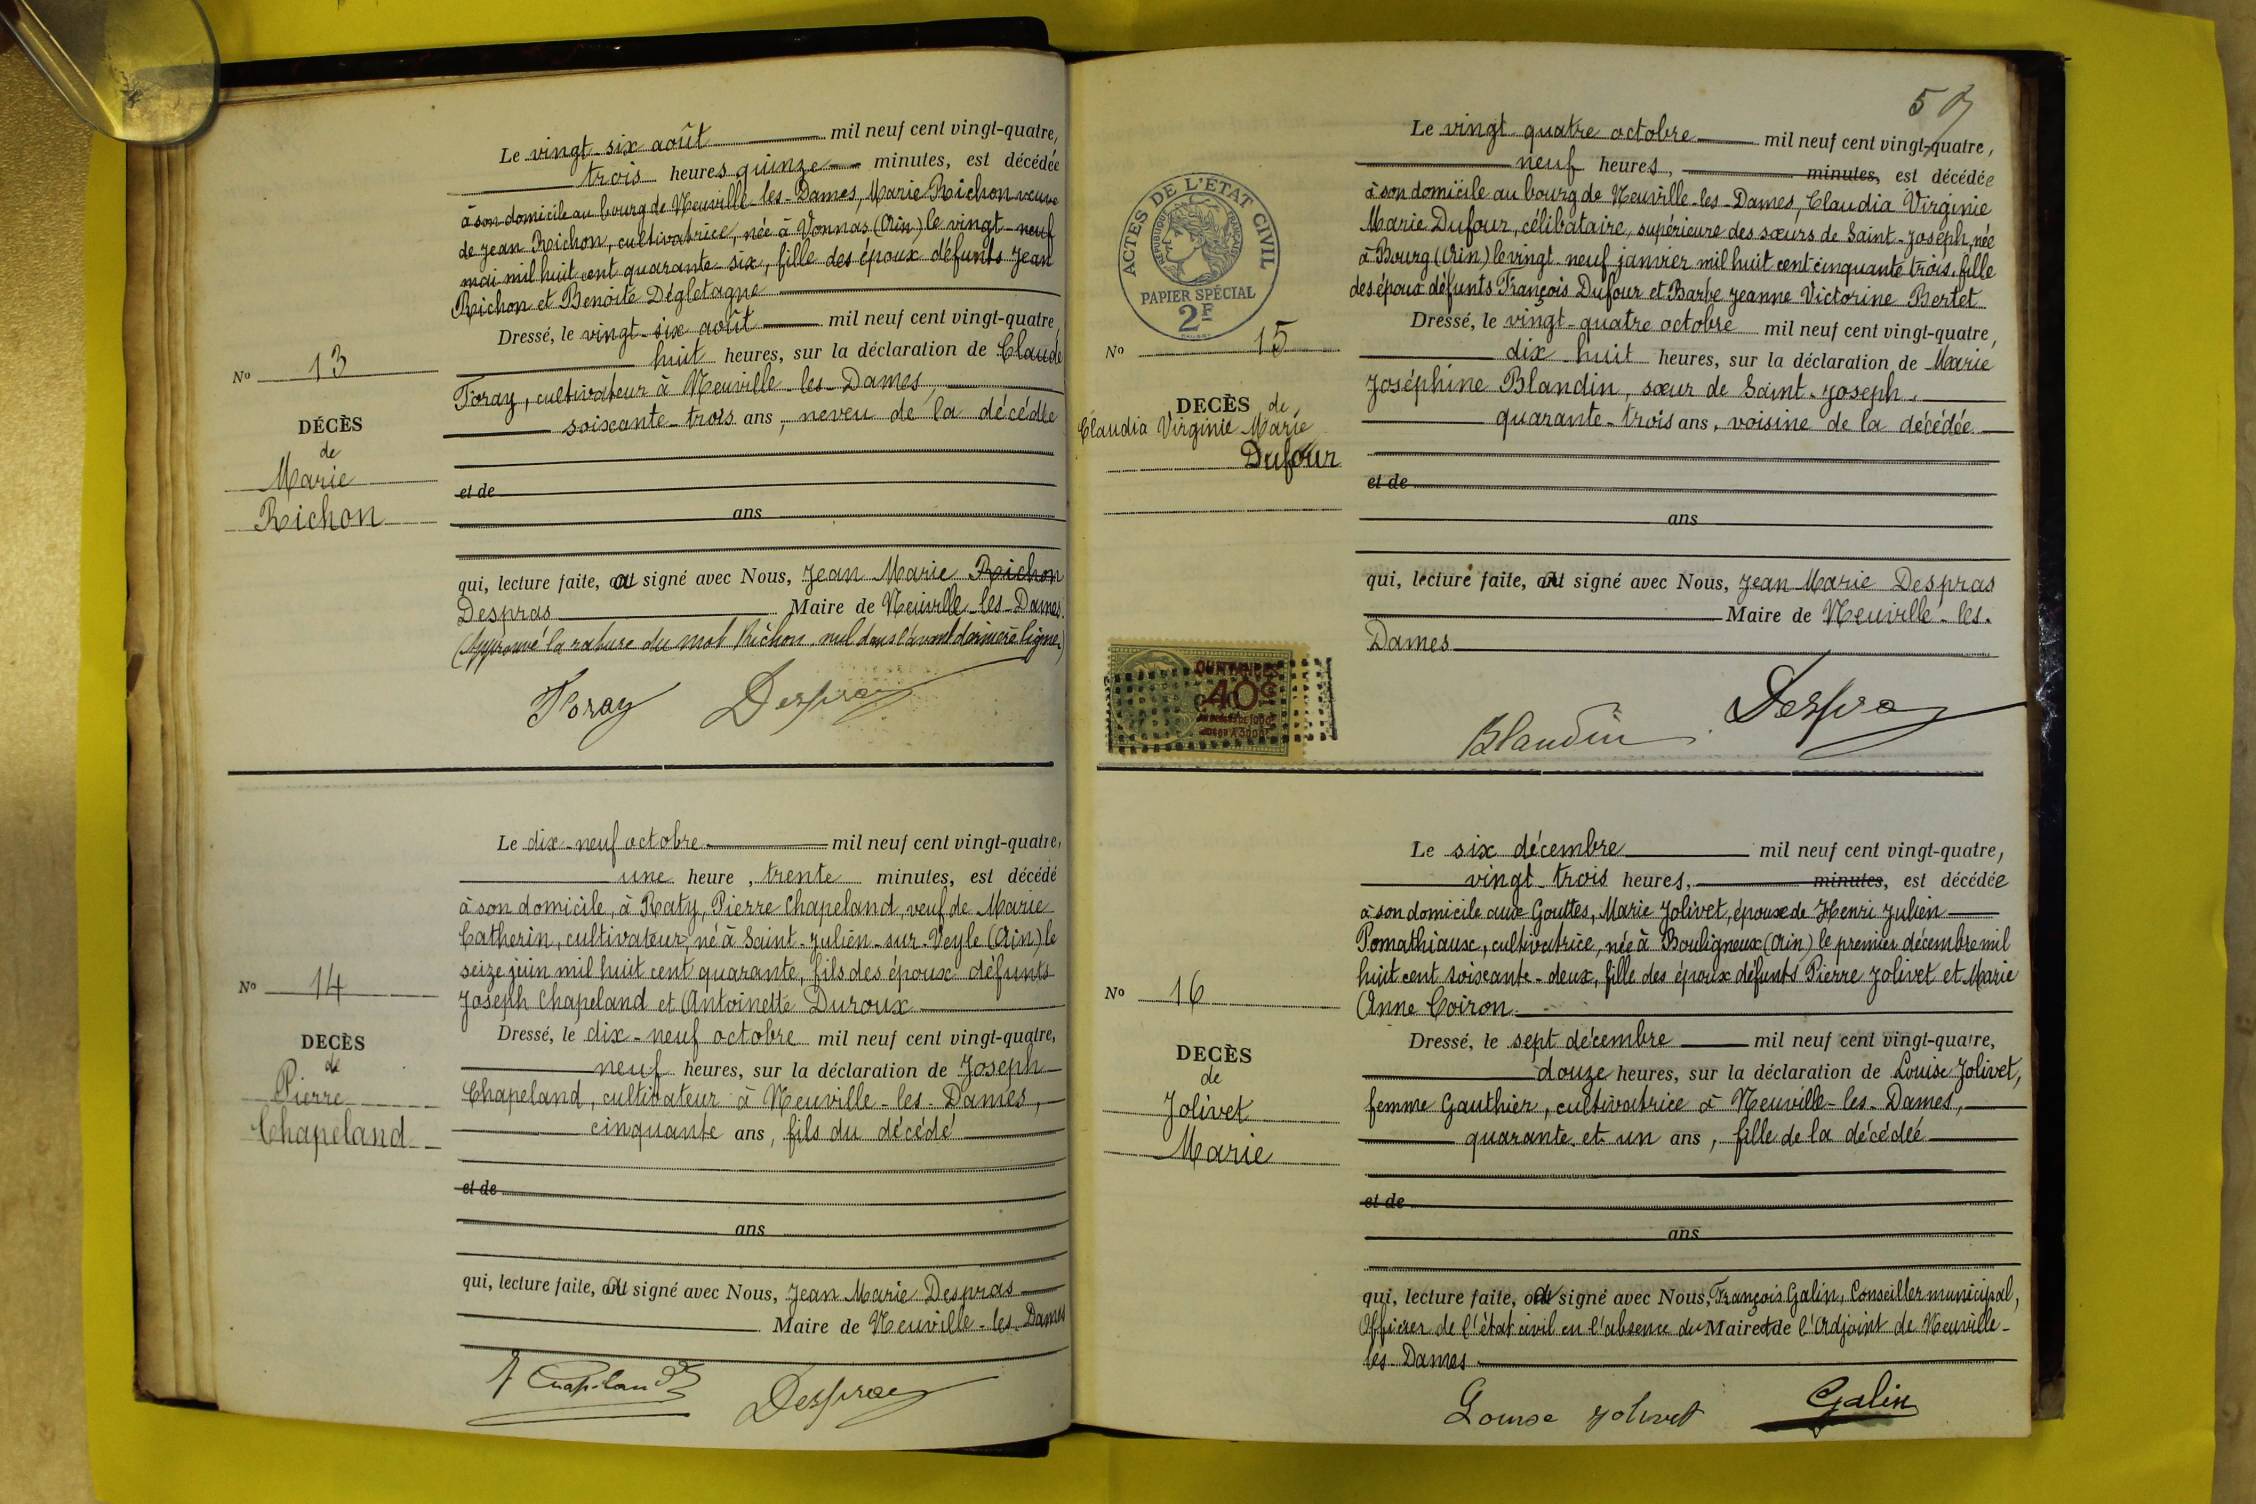 Le vingt-six août mil neuf cent vingt-quatre,
trois heures quinze minutes, est décédée
à son domicile au bourg de Neuville-les-Dames, Marie Richon veuve
de Jean Richon, cultivatrice, née à Vonnas (Ain) le vingt-neuf
mai mil huit cent quarante six, fille des époux défunts Jean
Richon et Benoite Dégletagne
Dressé, le vingt-six août mil neuf cent vingt-quatre,
huit heures, sur la déclaration de Claude
Foray, cultivateur à Neuville-les-Dames,
soixante-trois ans, neveu de la décédée
et de
ans
qui, lecture faite, a signé avec Nous, Jean Marie Richon
Despras Maire de Neuville-les-Dames.
(Approuvé la rature du mot Richon nul dans l'avant dernière ligne)
Foray Despras
No 13
DÉCÈS
de
Marie
Richon
Le dix-neuf octobre mil neuf cent vingt-quatre,
une heure, trente minutes, est décédé
à son domicile, à Raty, Pierre Chapeland, veuf de Marie
Catherin, cultivateur, né à Saint-Julien-sur-Veyle (Ain) le
seize juin mil huit cent quarante, fils des époux défunts
Joseph Chapeland et Antoinette Duroux
Dressé, le dix-neuf octobre mil neuf cent vingt-quatre,
neuf heures, sur la déclaration de Joseph
Chapeland, cultivateur à Neuville-les-Dames,
cinquante ans, fils du décédé
et de
ans
qui, lecture faite, a signé avec Nous, Jean Marie Despras
Maire de Neuville-les-Dames
Chapeland Despras
No 14
DECÈS
de
Pierre
Chapeland
5
Le vingt quatre octobre mil neuf cent vingt-quatre,
neuf heures, minutes, est décédée
à son domicile au bourg de Neuville-les-Dames, Claudia Virginie
Marie Dufour, célibataire, supérieure des sœurs de Saint-Joseph, née
à Bourg (Ain) le vingt-neuf janvier mil huit cent cinquante trois, fille
des époux défunts François Dufour et Barbe Jeanne Victorine Bertet
Dressé, le vingt-quatre octobre mil neuf cent vingt-quatre,
dix huit heures, sur la déclaration de Marie
Joséphine Blandin, sœur de Saint-Joseph,
quarante-trois ans, voisine de la décédée
et de
ans
qui, lecture faite, a signé avec Nous, Jean Marie Despras
Maire de Neuville-les-
Dames
Blandin Despras
ACTES DE L'ÉTAT CIVIL
RÉPUBLIQUE FRANÇAISE
PAPIER SPÉCIAL
2F
No 15
DECÈS de
Claudia Virginie Marie
Dufour
QUITTANCES
40c
Le six décembre mil neuf cent vingt-quatre,
vingt-trois heures, minutes, est décédée
à son domicile aux Gouttes, Marie Jolivet, épouse de Henri Julien
Pomathiaux, cultivatrice, née à Bouligneux (Ain) le premier décembre mil
huit cent soixante-deux, fille des époux défunts Pierre Jolivet et Marie
Anne Coiron
Dressé, le sept décembre mil neuf cent vingt-quatre,
douze heures, sur la déclaration de Louise Jolivet,
femme Gauthier, cultivatrice à Neuville-les-Dames,
quarante et un ans, fille de la décédée
et de
ans
qui, lecture faite, a signé avec Nous, François Galin, Conseiller municipal,
Officier de l'état civil en l'absence du Maire et de l'Adjoint de Neuville-
les-Dames
Louise Jolivet Galin
No 16
DECÈS
de
Jolivet
Marie